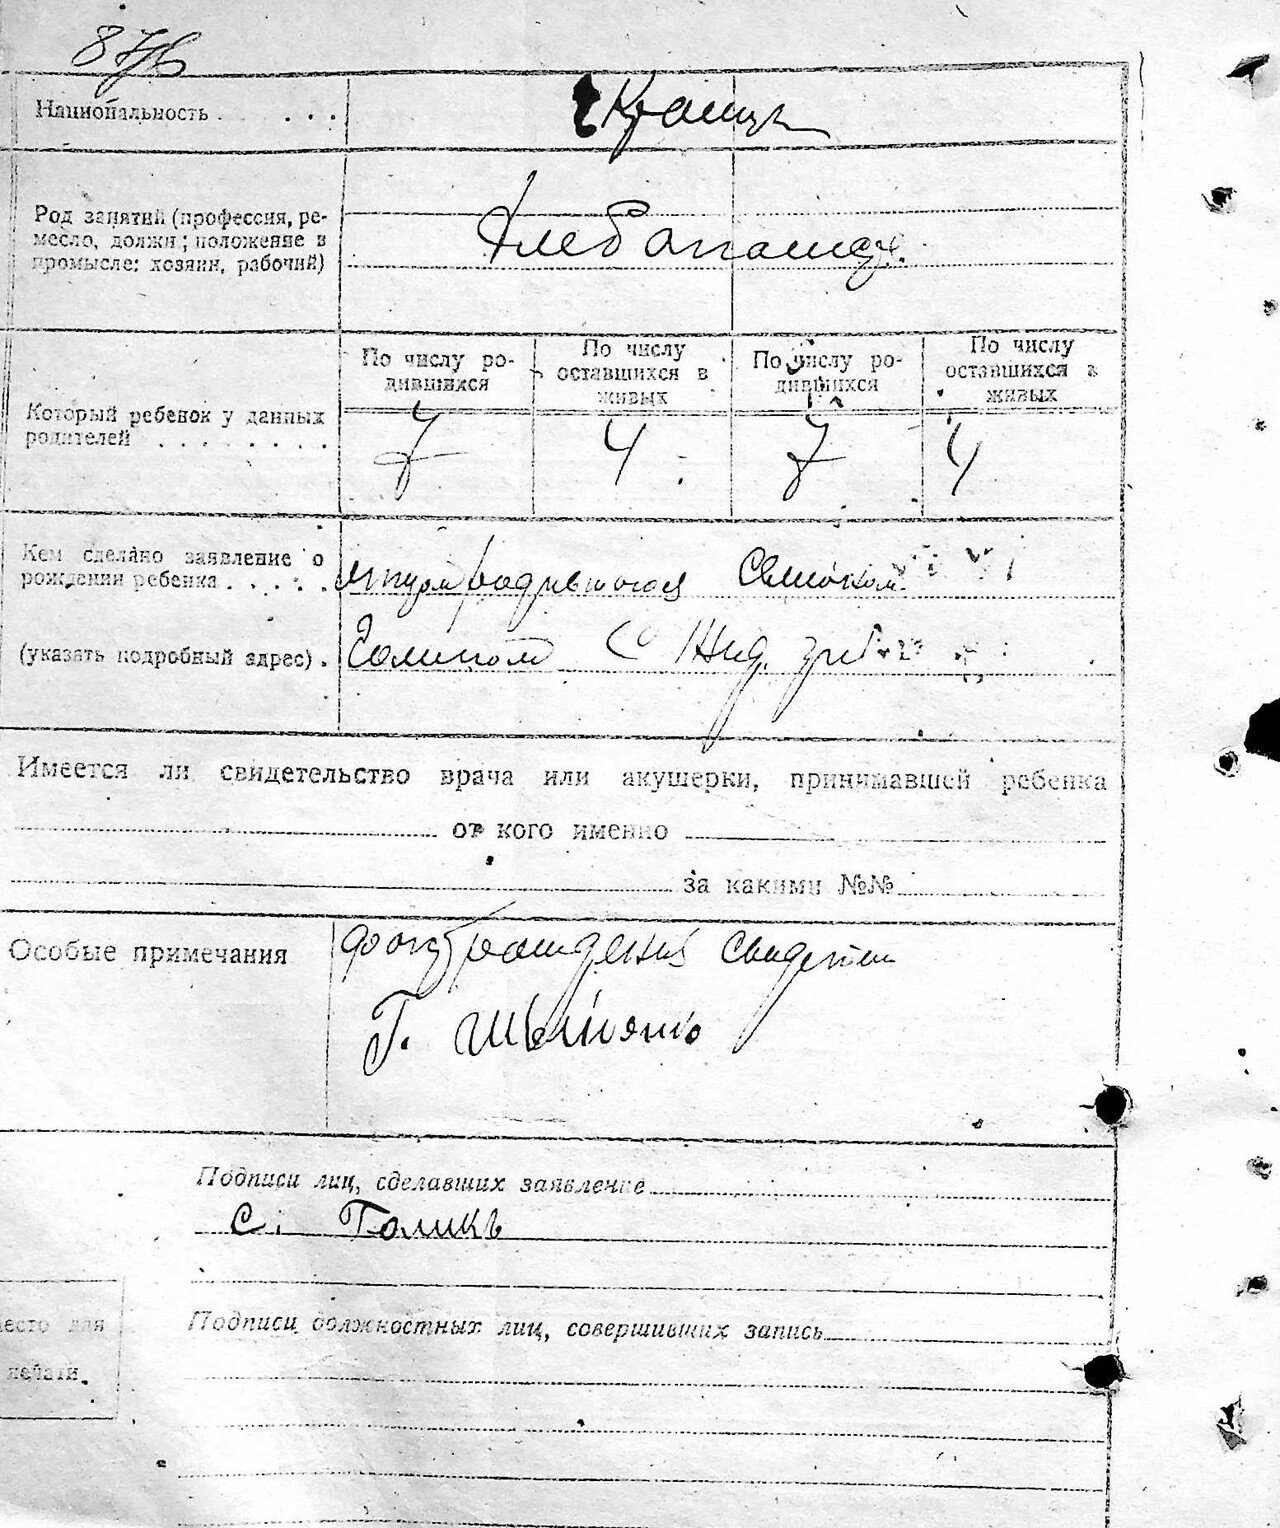 87
Национальность . . . . Украинц
Род занятий (профессия, ре-
месло, должн.; положение в
промысле: хозяин, рабочий)
Хлебопашец
По числу ро-
дившихся
По числу
оставшихся в
живых
По числу ро-
дившихся
По числу
оставшихся в
живых
Который ребенок у данных
родителей . . . . . . . .
7 4 7 4
Кем сделано заявление о
рождении ребенка . . . . .
отцом родившагося Семеном
(указать подробный адрес) .
Голиком с
Имеется ли свидетельство врача или акушерки, принимавшей ребенка
от кого именно
за какими №№
Особые примечания
факт рождения свидетели
Г.
Подписи лиц, сделавших заявление
С. Голикъ
Подписи должностных лиц, совершивших запись
место для
печати.